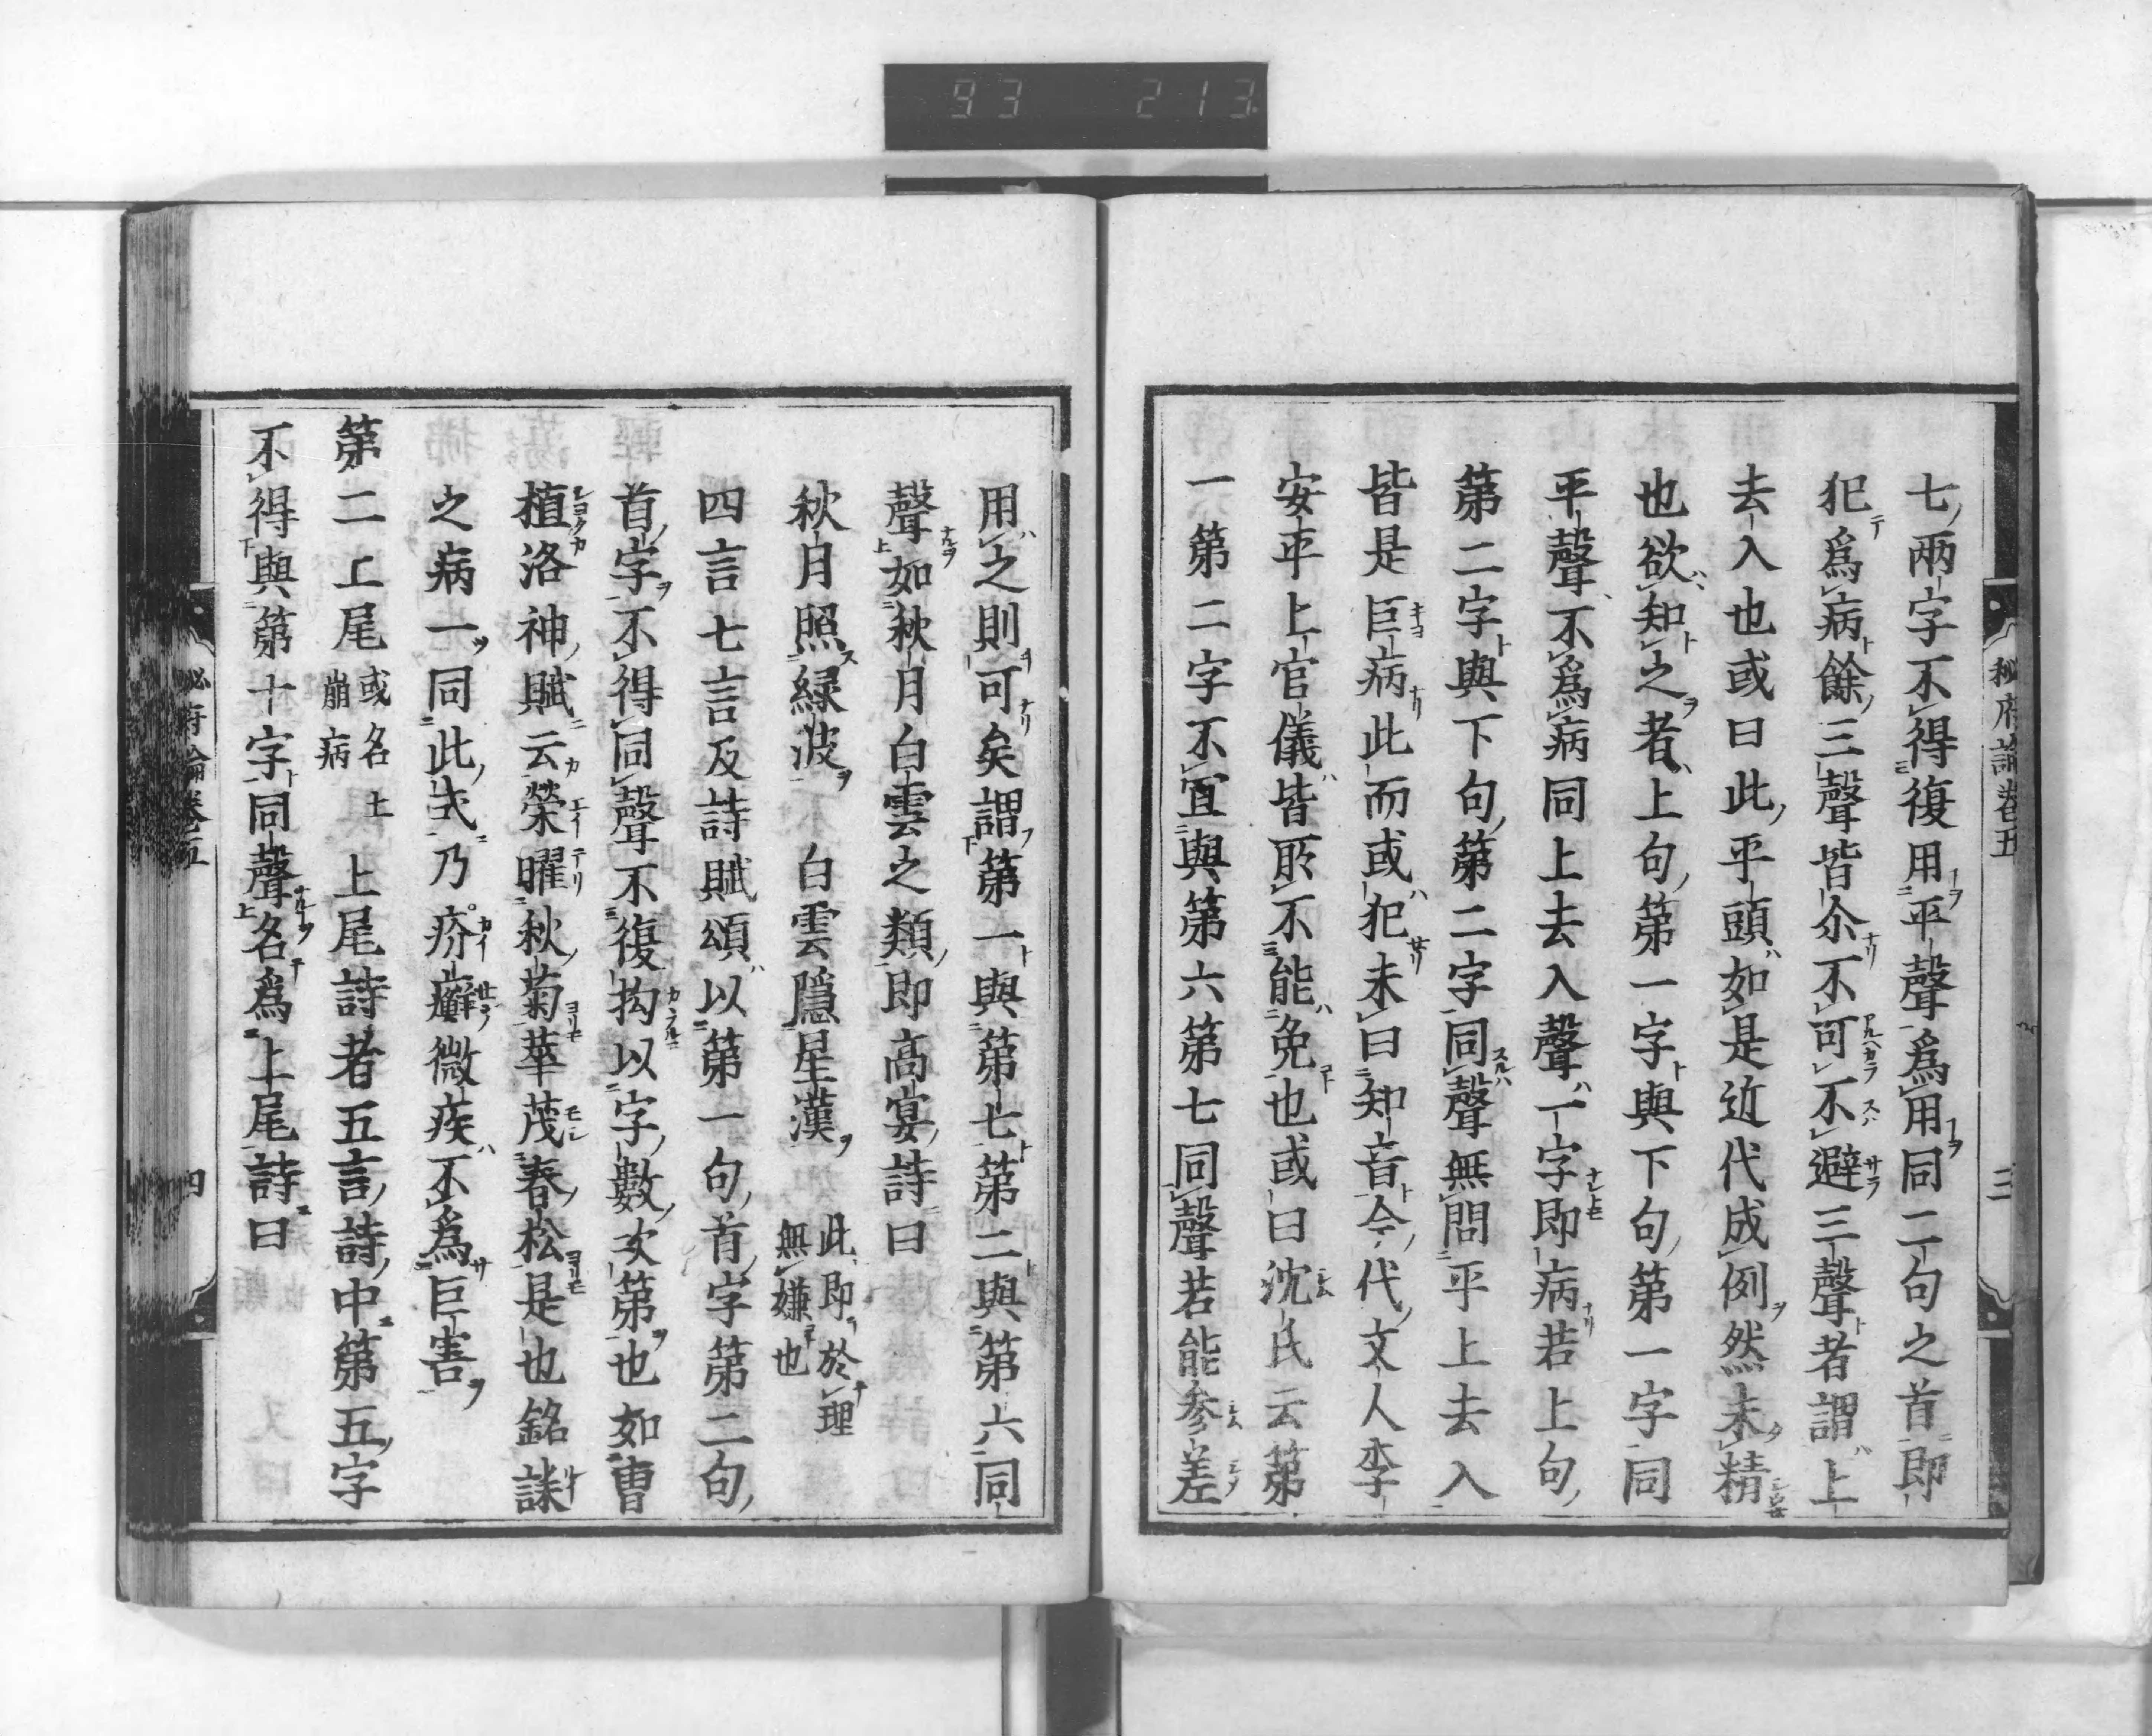 93 213
七兩字不得復用平聲爲用同二句之首即
犯爲病餘三聲皆尒不可不避三聲者謂上
去入也或曰此平頭如是近代成例然未精
也欲知之者上句第一字與下句第一字同
平聲不爲病同上去入聲一字即病若上句
第二字與下句第二字同聲無問平上去入
皆是巨病此而或犯未曰知音今代文人李
安平上官儀皆所不能免也或曰沈氏云第
一第二字不宜與第六第七同聲若能參差
秘府論卷五 三
用之則可矣謂第一與第七第二與第六同
聲如秋月白雲之類即高宴詩曰
秋月照綠波 白雲隱星漢 此即於理無嫌也
四言七言及詩賦頌以第一句首字第二句
首字不得同聲不復拘以字數次第也如曹
植洛神賦云榮曜秋菊華茂春松是也銘誄
之病一同此式乃疥癬微疾不爲巨害
第二上尾 或名土崩病 上尾詩者五言詩中第五字
不得與第十字同聲名爲上尾詩曰
秘府論卷五 四